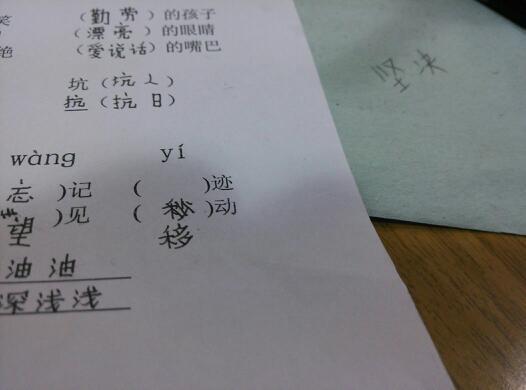 笑 (勤劳)的孩子
(漂亮)的眼睛
绝 (爱说话)的嘴巴
坚决
坑(坑人)
抗(抗日)
wàng yí
忘)记 ( )迹
望)见 (秒)动
移
油油
深浅浅